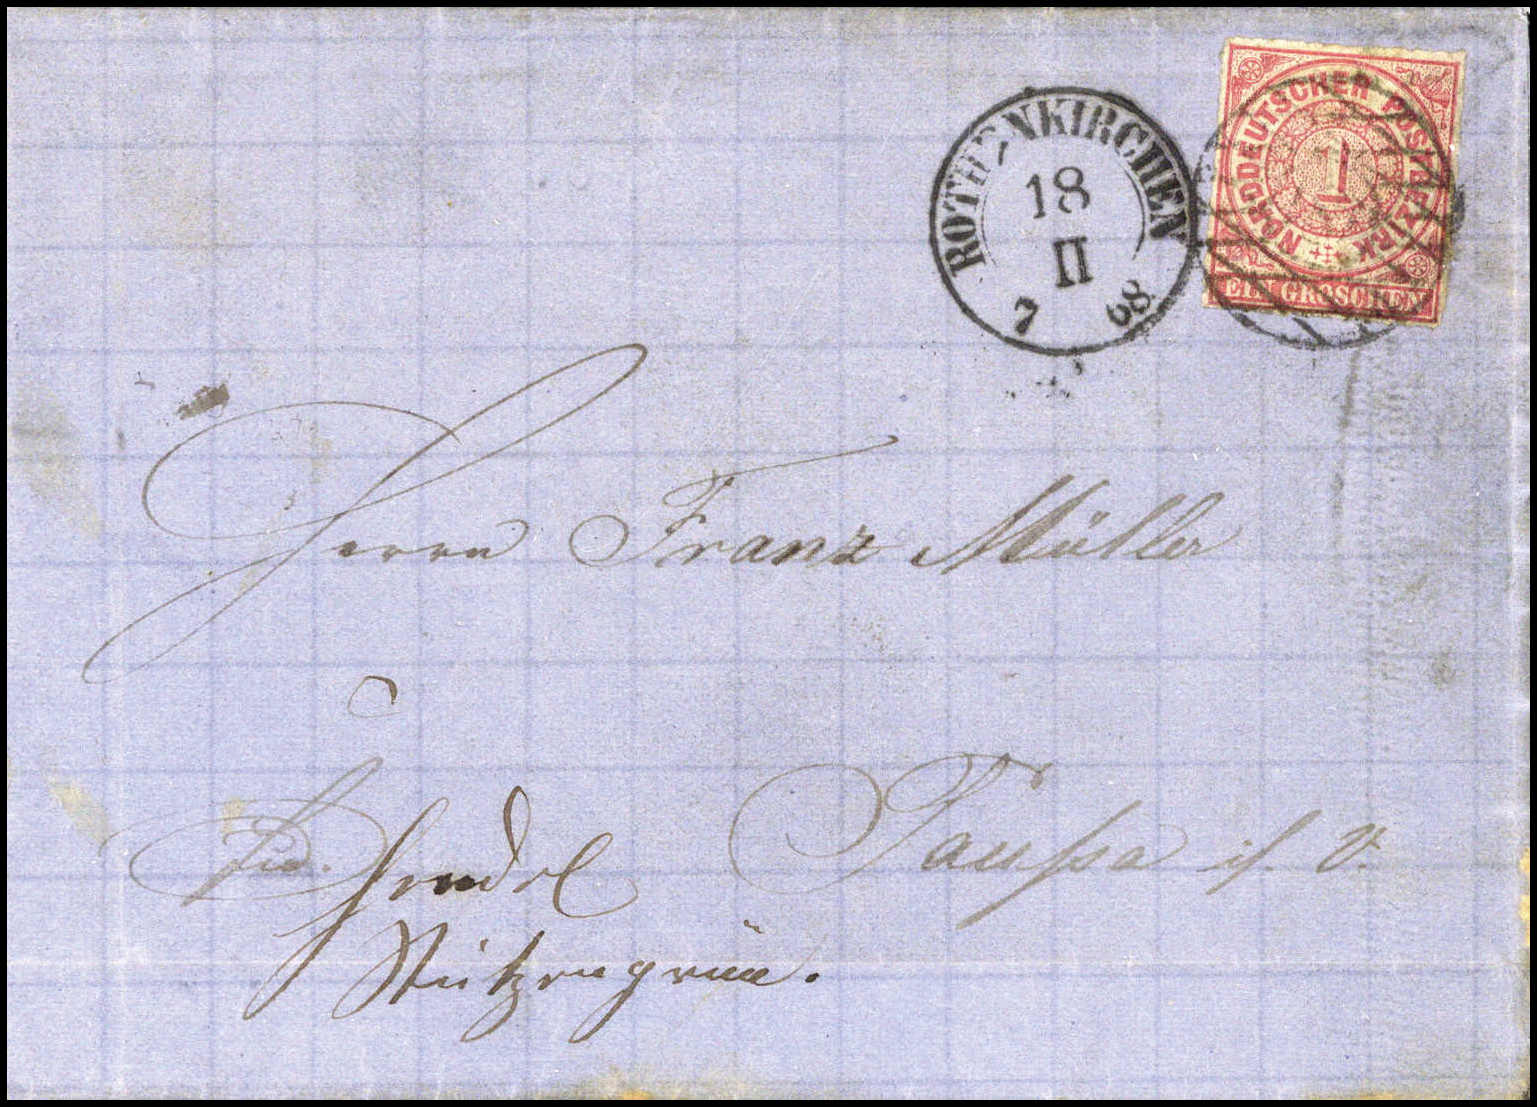 ROTHENKIRCHEN
18
II
7 68
NORDDEUTSCHER POSTBEZIRK
1
EIN GROSCHEN
Herrn Franz Müller
Taussa i/V.
Stützengrün.